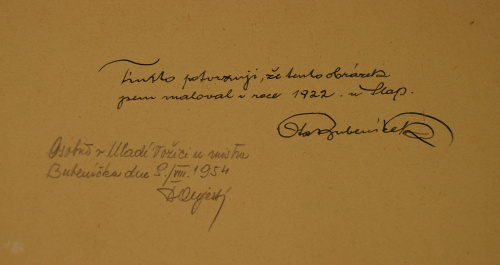 Tímto potvrzuji, že tento obrázek
jsem maloval v roce 1922. u Slap.
Ota Bubeníček
Osobně v Mladé Vožici u mistra
Bubeníčka dne 5./VIII. 1954